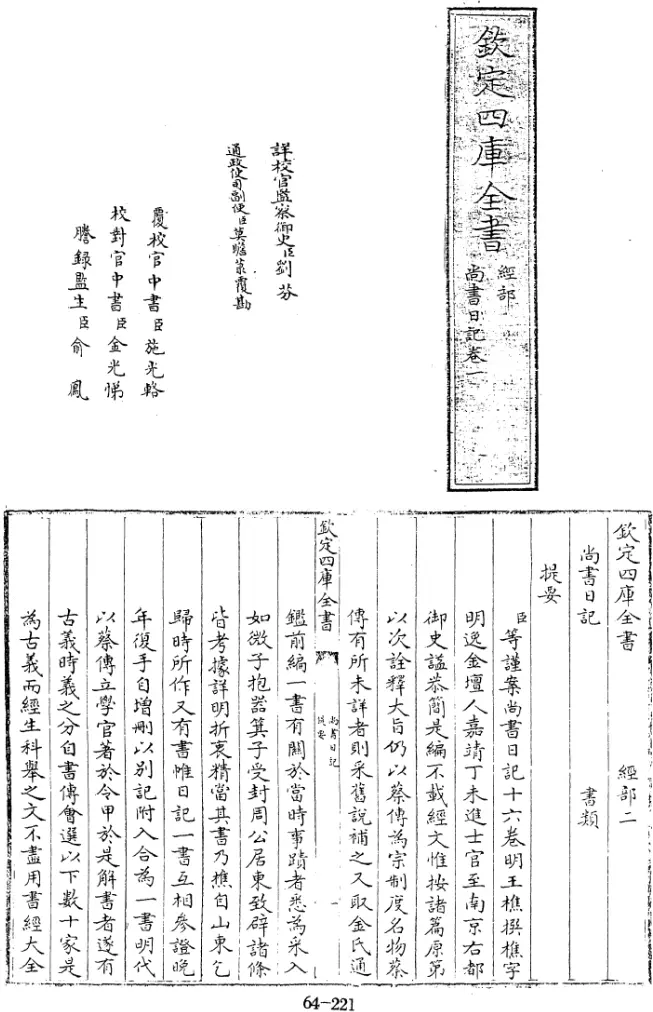 欽定四庫全書
經部
尚書日記卷一
詳校官監察御史臣劉芬
通政使司副使臣莫瞻菉覆勘
覆校官中書臣施光輅
校對官中書臣金光悌
謄錄監生臣俞鳳
欽定四庫全書 經部二
尚書日記 書類
提要
臣等謹案尚書日記十六卷明王樵撰樵字
明逸金壇人嘉靖丁未進士官至南京右都
御史諡恭簡是編不載經文惟按諸篇原第
以次詮釋大旨仍以蔡傳為宗制度名物蔡
傳有所未詳者則采舊說補之又取金氏通
欽定四庫全書
尚書日記
提要
鑑前編一書有關於當時事蹟者悉為采入
如微子抱器箕子受封周公居東致辟諸條
皆考據詳明折衷精當其書乃樵自山東乞
歸時所作又有書帷日記一書互相參證晚
年復手自增刪以別記附入合為一書明代
以蔡傳立學官著於令甲於是解書者遂有
古義時義之分自書傳會選以下數十家是
為古義而經生科舉之文不盡用書經大全
64-221